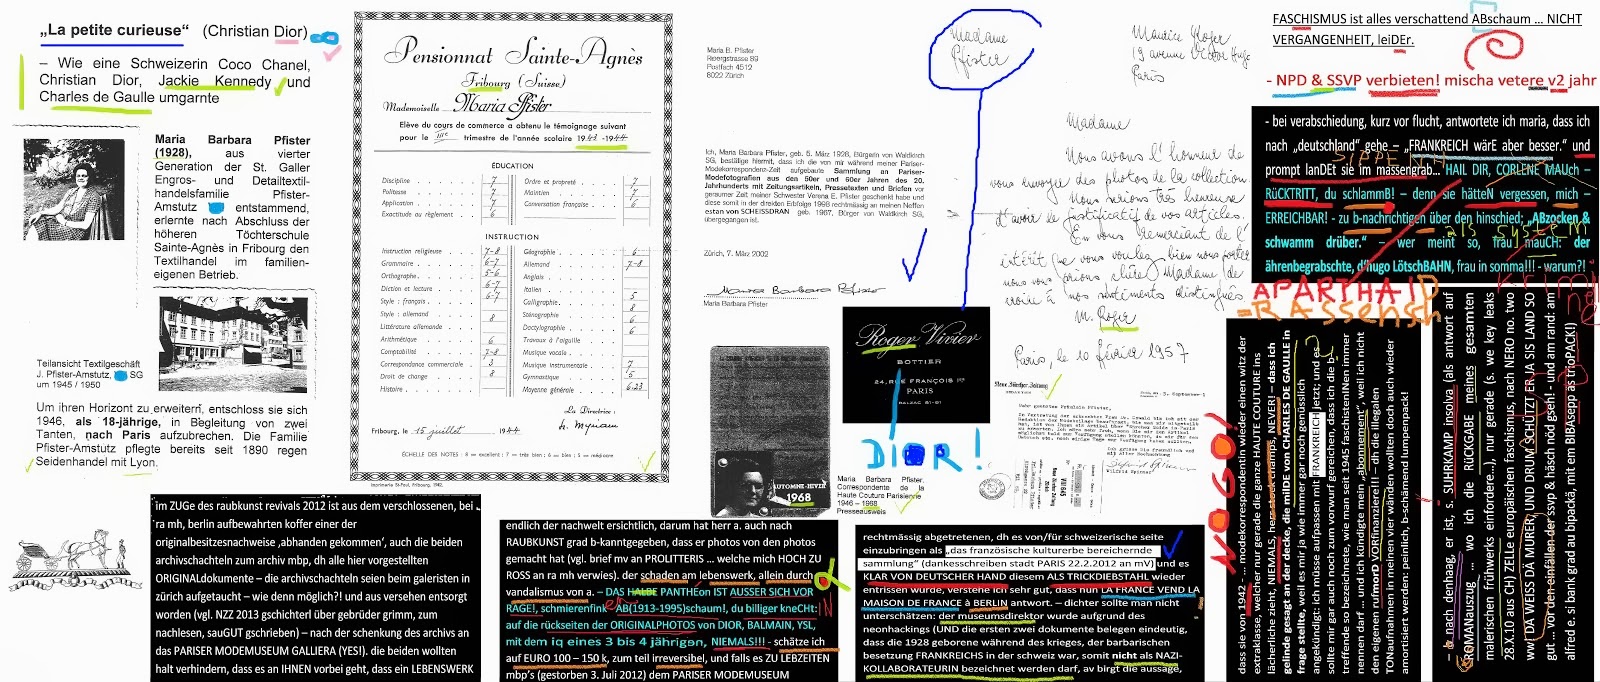 „La petite curieuse" (Christian Dior)
– Wie eine Schweizerin Coco Chanel,
Christian Dior, Jackie Kennedy und
Charles de Gaulle umgarnte
Maria Barbara Pfister
(1928), aus vierter
Generation der St. Galler
Engros- und Detailtextil-
handelsfamilie Pfister-
Amstutz SG entstammend,
erlernte nach Abschluss der
höheren Töchterschule
Sainte-Agnès in Fribourg den
Textilhandel im familien-
eigenen Betrieb.
Teilansicht Textilgeschäft
J. Pfister-Amstutz, SG
um 1945 / 1950
Um ihren Horizont zu erweitern, entschloss sie sich
1946, als 18-jährige, in Begleitung von zwei
Tanten, nach Paris aufzubrechen. Die Familie
Pfister-Amstutz pflegte bereits seit 1890 regen
Seidenhandel mit Lyon.
Pensionnat Sainte-Agnès
Fribourg (Suisse)
Mademoiselle Maria Pfister
Elève du cours de commerce a obtenu le témoignage suivant
pour le IIIe trimestre de l'année scolaire 1943-1944
ÉDUCATION
Discipline 7 Ordre et propreté 7
Politesse 7 Maintien 7
Application 7 Conversation française 6
Exactitude au règlement 6
INSTRUCTION
Instruction religieuse 7-8 Géographie 6
Grammaire 6-7 Allemand 7-8
Orthographe 5-6 Anglais
Diction et lecture 6-7 Italien
Style : français 6-7 Calligraphie 5
Style : allemand 8 Sténographie 8
Littérature allemande Dactylographie 6
Arithmétique 6 Travaux à l'aiguille
Comptabilité 7-8 Musique vocale
Correspondance commerciale 3 Musique instrumentale 7
Droit de change 8 Gymnastique 5
Histoire Moyenne générale 6.23
La Directrice :
Fribourg, le 15 juillet 1944
ÉCHELLE DES NOTES : 8 = excellent ; 7 = très bien ; 6 = bien ; 5 = médiocre
Imprimerie St-Paul, Fribourg, 1942.
Maria B. Pfister
Postfach 4512
8022 Zürich
Ich, Maria Barbara Pfister, geb. 5. März 1928, Bürgerin von Waldkirch
SG, bestätige hiermit, dass ich die von mir während meiner Pariser-
Modekorrespondenten-Zeit aufgebaute Sammlung an Pariser-
Modefotografien aus den 50er und 60er Jahren des 20.
Jahrhunderts mit Zeitungsartikeln, Pressetexten und Briefen vor
geraumer Zeit meiner Schwester Verena E. Pfister geschenkt habe und
diese somit in der dreiten Erbfolge 1998 rechtmässig an meinen Neffen
estan von SCHEISSDRAN geb. 1967, Bürger von Waldkirch SG,
übergegangen ist.
Zürich, 7. März 2002
Maria Barbara Pfister
Maria Barbara Pfister
Madame
Pfister
Paris
Madame
Nous avons l'honneur de
vous envoyer des photos de la collection
Nous serions très heureuse
d'avoir le justificatif de vos articles.
En vous remerciant de l'
Paris, le 10 février 1957
Roger Vivier
BOTTIER
24, RUE FRANÇOIS Ier
PARIS
BALZAC 81-81
DIOR!
AUTOMNE-HIVER
1968
Maria Barbara Pfister
Correspondente de la
Haute Couture Parisienne
1946 – 1968
Presseausweis
Neue Zürcher Zeitung
FASCHISMUS ist alles verschattend ABschaum ... NICHT
VERGANGENHEIT, leiDEr.
- NPD & SSVP verbieten! mischa vetere v2 jahr
- bei verabschiedung, kurz vor flucht, antwortete ich maria, dass ich
nach „deutschland" gehe – „FRANKREICH wärE aber besser." und
prompt lanDEt sie im massengrab... HAIL DIR, CORLENE MAUch –
RÜCKTRITT, du schlammB! – denn sie hätteN vergessen, mich
ERREICHBAR! - zu b-nachrichtigen über den hinschied; „ABzocken &
schwamm drüber." – wer meint so, frau mauCH: der
ährenbegrabschte, d'hugo LötschBAHN, frau in somma!!! - warum?!
SIPPEN
als system
APARTHAID
=RASSENSH
NOGO!
im ZUGe des raubkunst revivals 2012 ist aus dem verschlossenen, bei
ra mh, berlin aufbewahrten koffer einer der
originalbesitzesnachweise ‚abhanden gekommen', auch die beiden
archivschachteln zum archiv mbp, dh alle hier vorgestellten
ORIGINALdokumente – die archivschachteln seien beim galeristen in
zürich aufgetaucht – wie denn möglich?! und aus versehen entsorgt
worden (vgl. NZZ 2013 gschichterl über gebrüder grimm, zum
nachlesen, sauGUT gschrieben) – nach der schenkung des archivs an
das PARISER MODEMUSEUM GALLIERA (YES!). die beiden wollten
halt verhindern, dass es an IHNEN vorbei geht, dass ein LEBENSWERK
endlich der nachwelt ersichtlich, darum hat herr a. auch nach
RAUBKUNST grad b-kanntgegeben, dass er photos von den photos
gemacht hat (vgl. brief mv an PROLITTERIS ... welche mich HOCH ZU
ROSS an ra mh verwies). der schaden am lebenswerk, allein durch
vandalismus von a. – DAS HALBE PANTHEon IST AUSSER SICH VOR
RAGE!, schmierenfink AB(1913-1995)schaum!, du billiger kneCHt: IN
auf die rückseiten der ORIGINALPHOTOS von DIOR, BALMAIN, YSL,
mit dem iq eines 3 bis 4 jährigen, NIEMALS!!! - schätze ich
auf EURO 100 – 150 k, zum teil irreversibel, und falls es ZU LEBZEITEN
mbp's (gestorben 3. Juli 2012) dem PARISER MODEMUSEUM
rechtmässig abgetretenen, dh es von/für schweizerische seite
einzubringen als „das französische kulturerbe bereichernde
sammlung" (dankesschreiben stadt PARIS 22.2.2012 an mV) und es
KLAR VON DEUTSCHER HAND diesem ALS TRICKDIEBSTAHL wieder
entrissen wurde, verstehe ich sehr gut, dass nun LA FRANCE VEND LA
MAISON DE FRANCE à BERLIN antwort. – dichter sollte man nicht
unterschätzen: der museumsdirektor wurde aufgrund des
nonhackings (UND die ersten zwei dokumente belegen eindeutig,
dass die 1928 geborene während des krieges, der barbarischen
besetzung FRANKREICHS in der schweiz war, somit nicht als NAZI-
KOLLABORATEURIN bezeichnet werden darf, av birgt die aussage,
dass sie von 1942 - ... modekorrespondentin wieder einen witz der
extraklasse, welcher nur gerade die ganze HAUTE COUTURE ins
lächerliche zieht, NIEMALS, herr stock champs, NEVER! – dass ich
gelinde gesagt an der decke, die milDE von CHARLES DE GAULLE in
frage stellte, weil es mir ja wie immer gar noch genüsslich
angekündigt: ich müsse aufpassen mit FRANKREICH jetzt, und es
sollte mir gar auch noch zum vorwurf gereichen, dass ich die ps
treffende so bezeichnete, wie man seit 1945 faschistenhlien immer
nennen darf ... und ich kündigte mein „abonnement", weil ich nicht
den eigenen rufmorD VORfinanziere!!! – dh die illegalen
TONaufnahmen in meinen vier wänden wollten doch auch wieder
amortisiert werden: peinlich, b-schämend lumpenpack!
– er nach denhaag, er ist, s. SUHRKAMP insolva (als antwort auf
ROMANauszug ... wo ich die RÜCKGABE meines gesamten
malerischen frühwerks einfordere...) nur gerade (s. we key leaks
28.X.10 aus CH) ZELLe europäischen faschismus, nach NERO no. two
wwI DA WEISS DÄ MURER! UND DRUM SCHÜTZT ER JA SIS LAND SO
gut ... vor den einfällen der ssvp & häsch nöd gseh! - und am rand: am
alfred e. si bank grad au bipackä, mit em BIRASepp as TroPACK!)